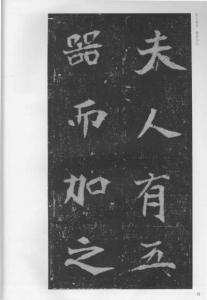 夫人有五
器而加之